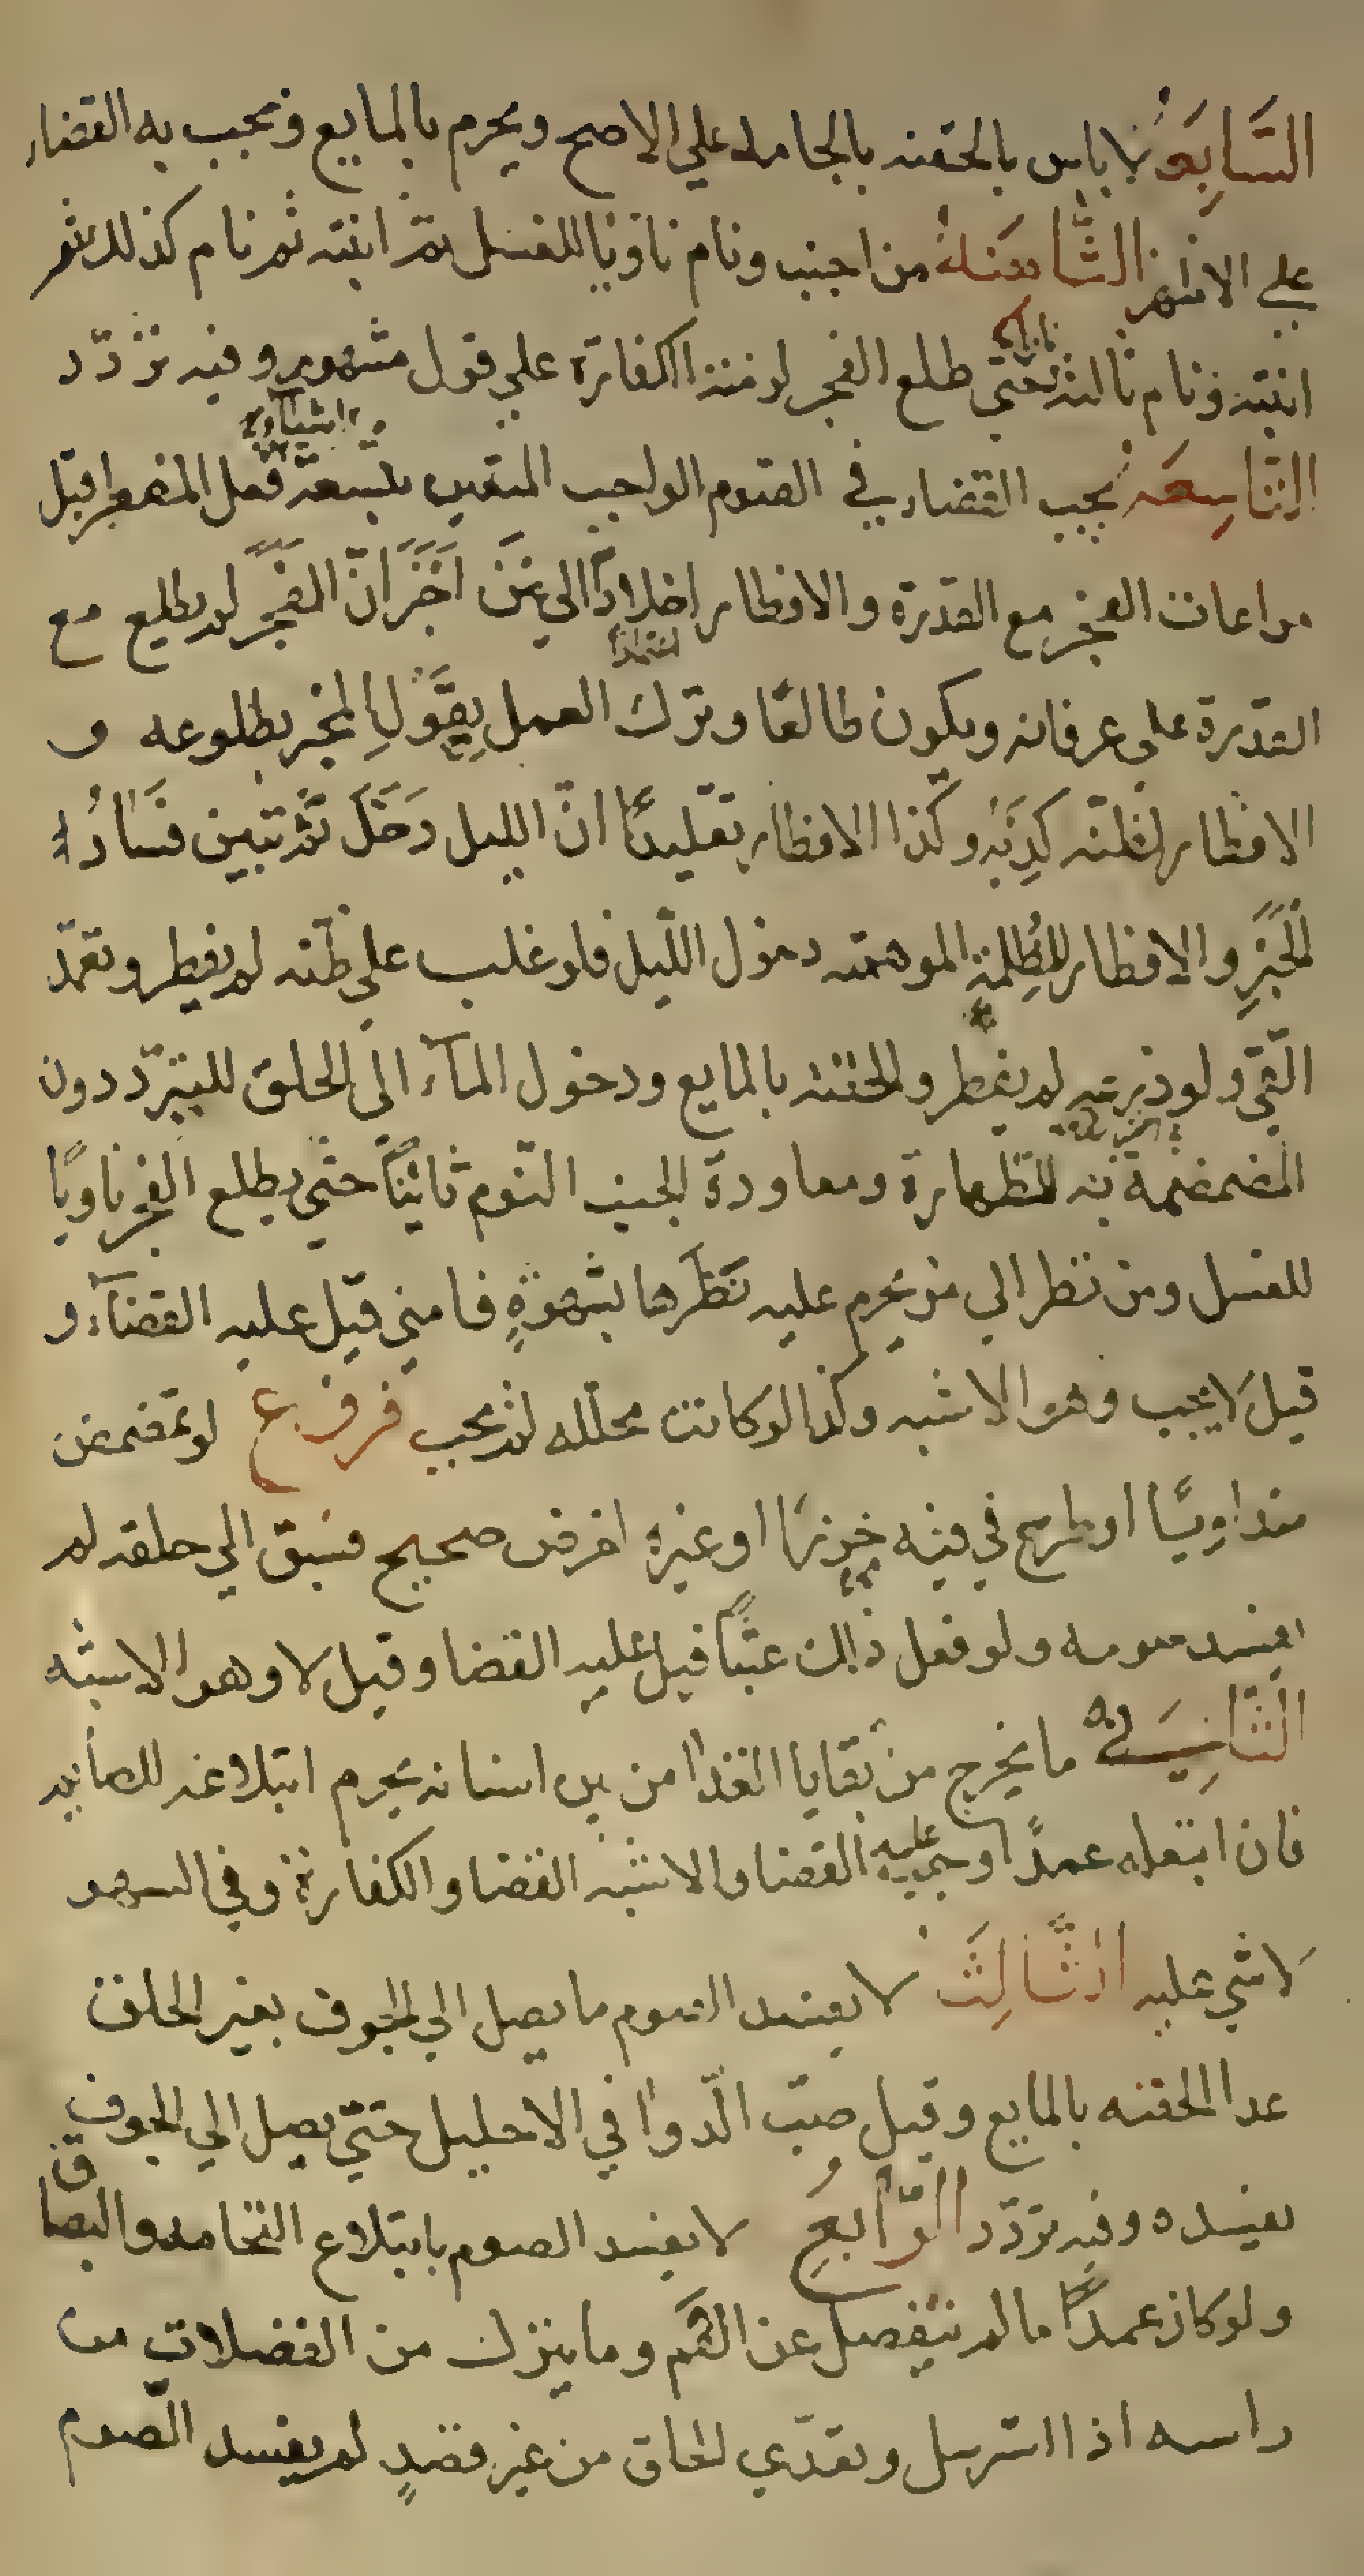 السَّابِعَةُ لا باس بالحقنه بالجامد علي الاصح ويحرم بالمايع ويجب به القضاء
علي الاظهر الثَّامِنَةُ من اجنب ونام ناويا للغسل ثمّ انتبه ثم نام كذلك ثم
انتبه ونام ثالثه حتي طلع الفجر لزمته الكفارة علي قول مشهور وفيه تردّد
التَّاسِعَه يجب القضاء في الصّوم الواجب المتعين بتسعة اشياء فعل المفطر قبل
مراعات الفجر مع القدرة والافطار اخلاداً الي مَن اَخبَرَ انّ الفَجرَ لم يطلع مع
القدرة علي عرفانه ويكون طالعًا وترك العمل بِقَولِ المخبر بطلوعه و
الافطار لظنّه كَذِبَه وكذا الافطار تقليدًا انّ الليل دَخَلَ ثمّ تبين فَسَادُ
الخَبَرِ والافطار للظُلِمةِ الموهمة دخول اللّيل فلو غلب علي ظنّه لم يفطر وتعمّد
القَيّ ولو ذرعه لم يفطر والحقنه بالمايع ودخول المآء الي الحلق للتبرّد دون
المضمضمة به للطهارة ومعاودة الجنب النّوم ثانيًا حتّي يطلع الفجر ناويًا
للغسل ومن نظر الي من يحرم عليه نَظَرها بشهوةٍ فامني قيل عليه القضآء و
قيل لا يجب وهو الاشبه وكذا لو كانت محلّله لم يجب فروع لو تمضمض
متداويًا او طرح في فيه خرزًا او غيره لغرض صحيح فسبق الي حلقه لم
يفسد صومه ولو فعل ذلك عبثًا قيل عليه القضا وقيل لا وهو الاشبه
الثَّانِيَة ما يخرج من بقايا الغذا من بين اسنانه يحرم ابتلاعه للصايم
فان ابتعله عمدًا وجب عليه القضا والاشبه القضا والكفارة وفي السهو
لا شي عليه الثَّالِثَ لا يفسد الصوم ما يصل الي الجوف بغير الحلق
عدا الحقنه بالمايع وقيل صبّ الّدوا في الاحليل حتّي يصل الي الجوف
يفسده وفيه تردّد الرَّابعُ لا يفسد الصوم بابتلاع النخامه والبصاق
ولو كان عمداً ما لم ينفصل عن الفَم وما ينزل من الفضلات من
راسه اذا استرسل وتعدّي الحلق من غير قصدٍ لم يفسد الصّوم